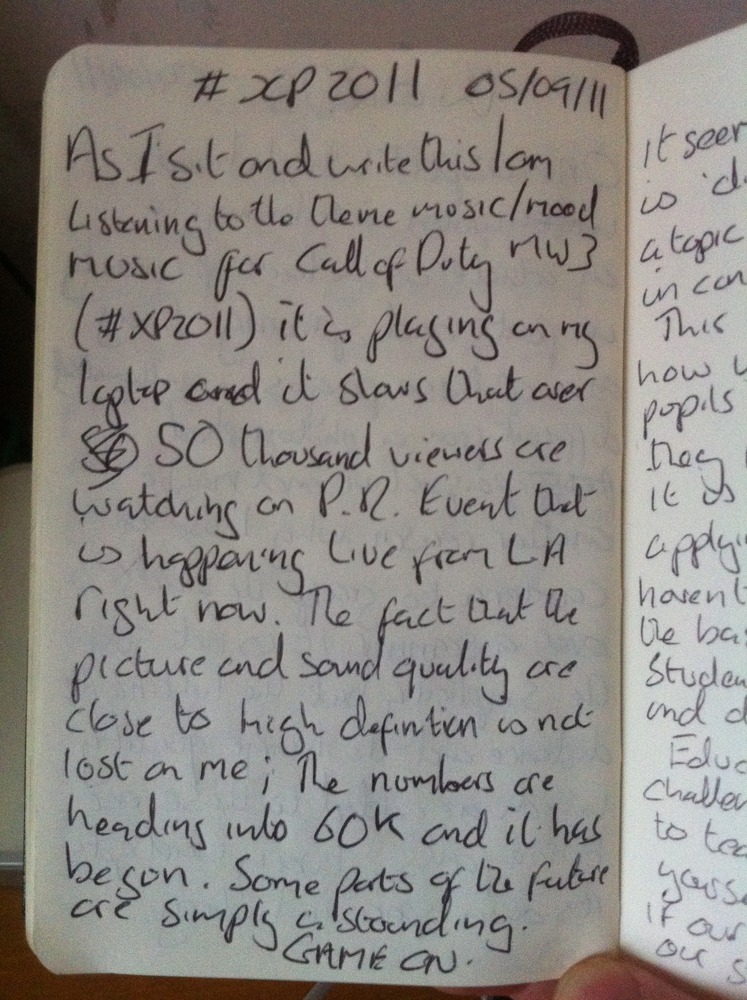 # XP2011 05/09/11
As I sit and write this I am
listening to the theme music/mood
music for Call of Duty MW3
(#XP2011) it is playing on my
laptop and it shows that over
50 thousand viewers are
watching an P.R. Event that
is happening live from LA
right now. The fact that the
picture and sound quality are
close to high definition is not
lost on me; The numbers are
heading into 60K and it has
begun. Some parts of the future
are simply astounding.
GAME ON.
it seem
is
a topic
in con
This
how
pupils
they
it is
applyin
haven't
the bas
Studen
and d
Educ
challen
to tea
yourse
if our
our s